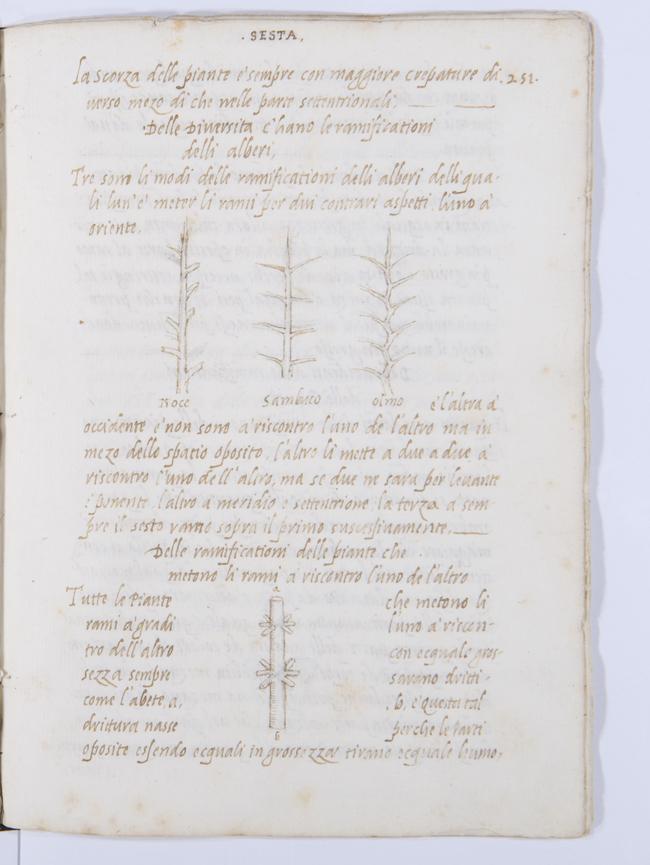 . SESTA,
La scorza delle piante e' sempre con maggiore crepature di .251.
verso mezo di che nelle parte settentrionali,
Delle Diversita c'hano le ramificationi
delli alberi,
Tre sono li modi delle ramificationi delli alberi delli qua-
li lun' e' meter li rami per dui contrari aspetti l'uno a'
oriente,
Noce Sambuco olmo e' l'altra a'
occidente e' non sono a' riscontro l'uno de l'altro ma in
mezo dello spatio oposito, l'altro li mette a due a due a'
riscontro l'uno dell'altro, ma se due ne sara per levante
e' ponente, l'altro a' meridio e' settentrione, la terza a' sem
pre il sesto ramo sopra il primo sucessinamente,
Delle ramificationi delle piante che
metono li rami a' riscontro l'uno de l'altro
Tutte le Piante che metono li
a
rami a' gradi l'uno a' riscon-
tro dell'altro con ecquale gros-
sezza sempre sarano dritti-
come l'abete, a, .b, e' questa tal
drittura nasse perche le Parti
b
oposite essendo ecquali in grossezza tirano ecquale humo,